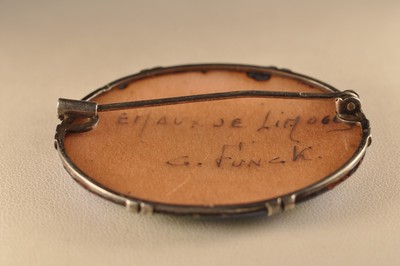 EMAUX DE LIMOGES
G. FUNCK.